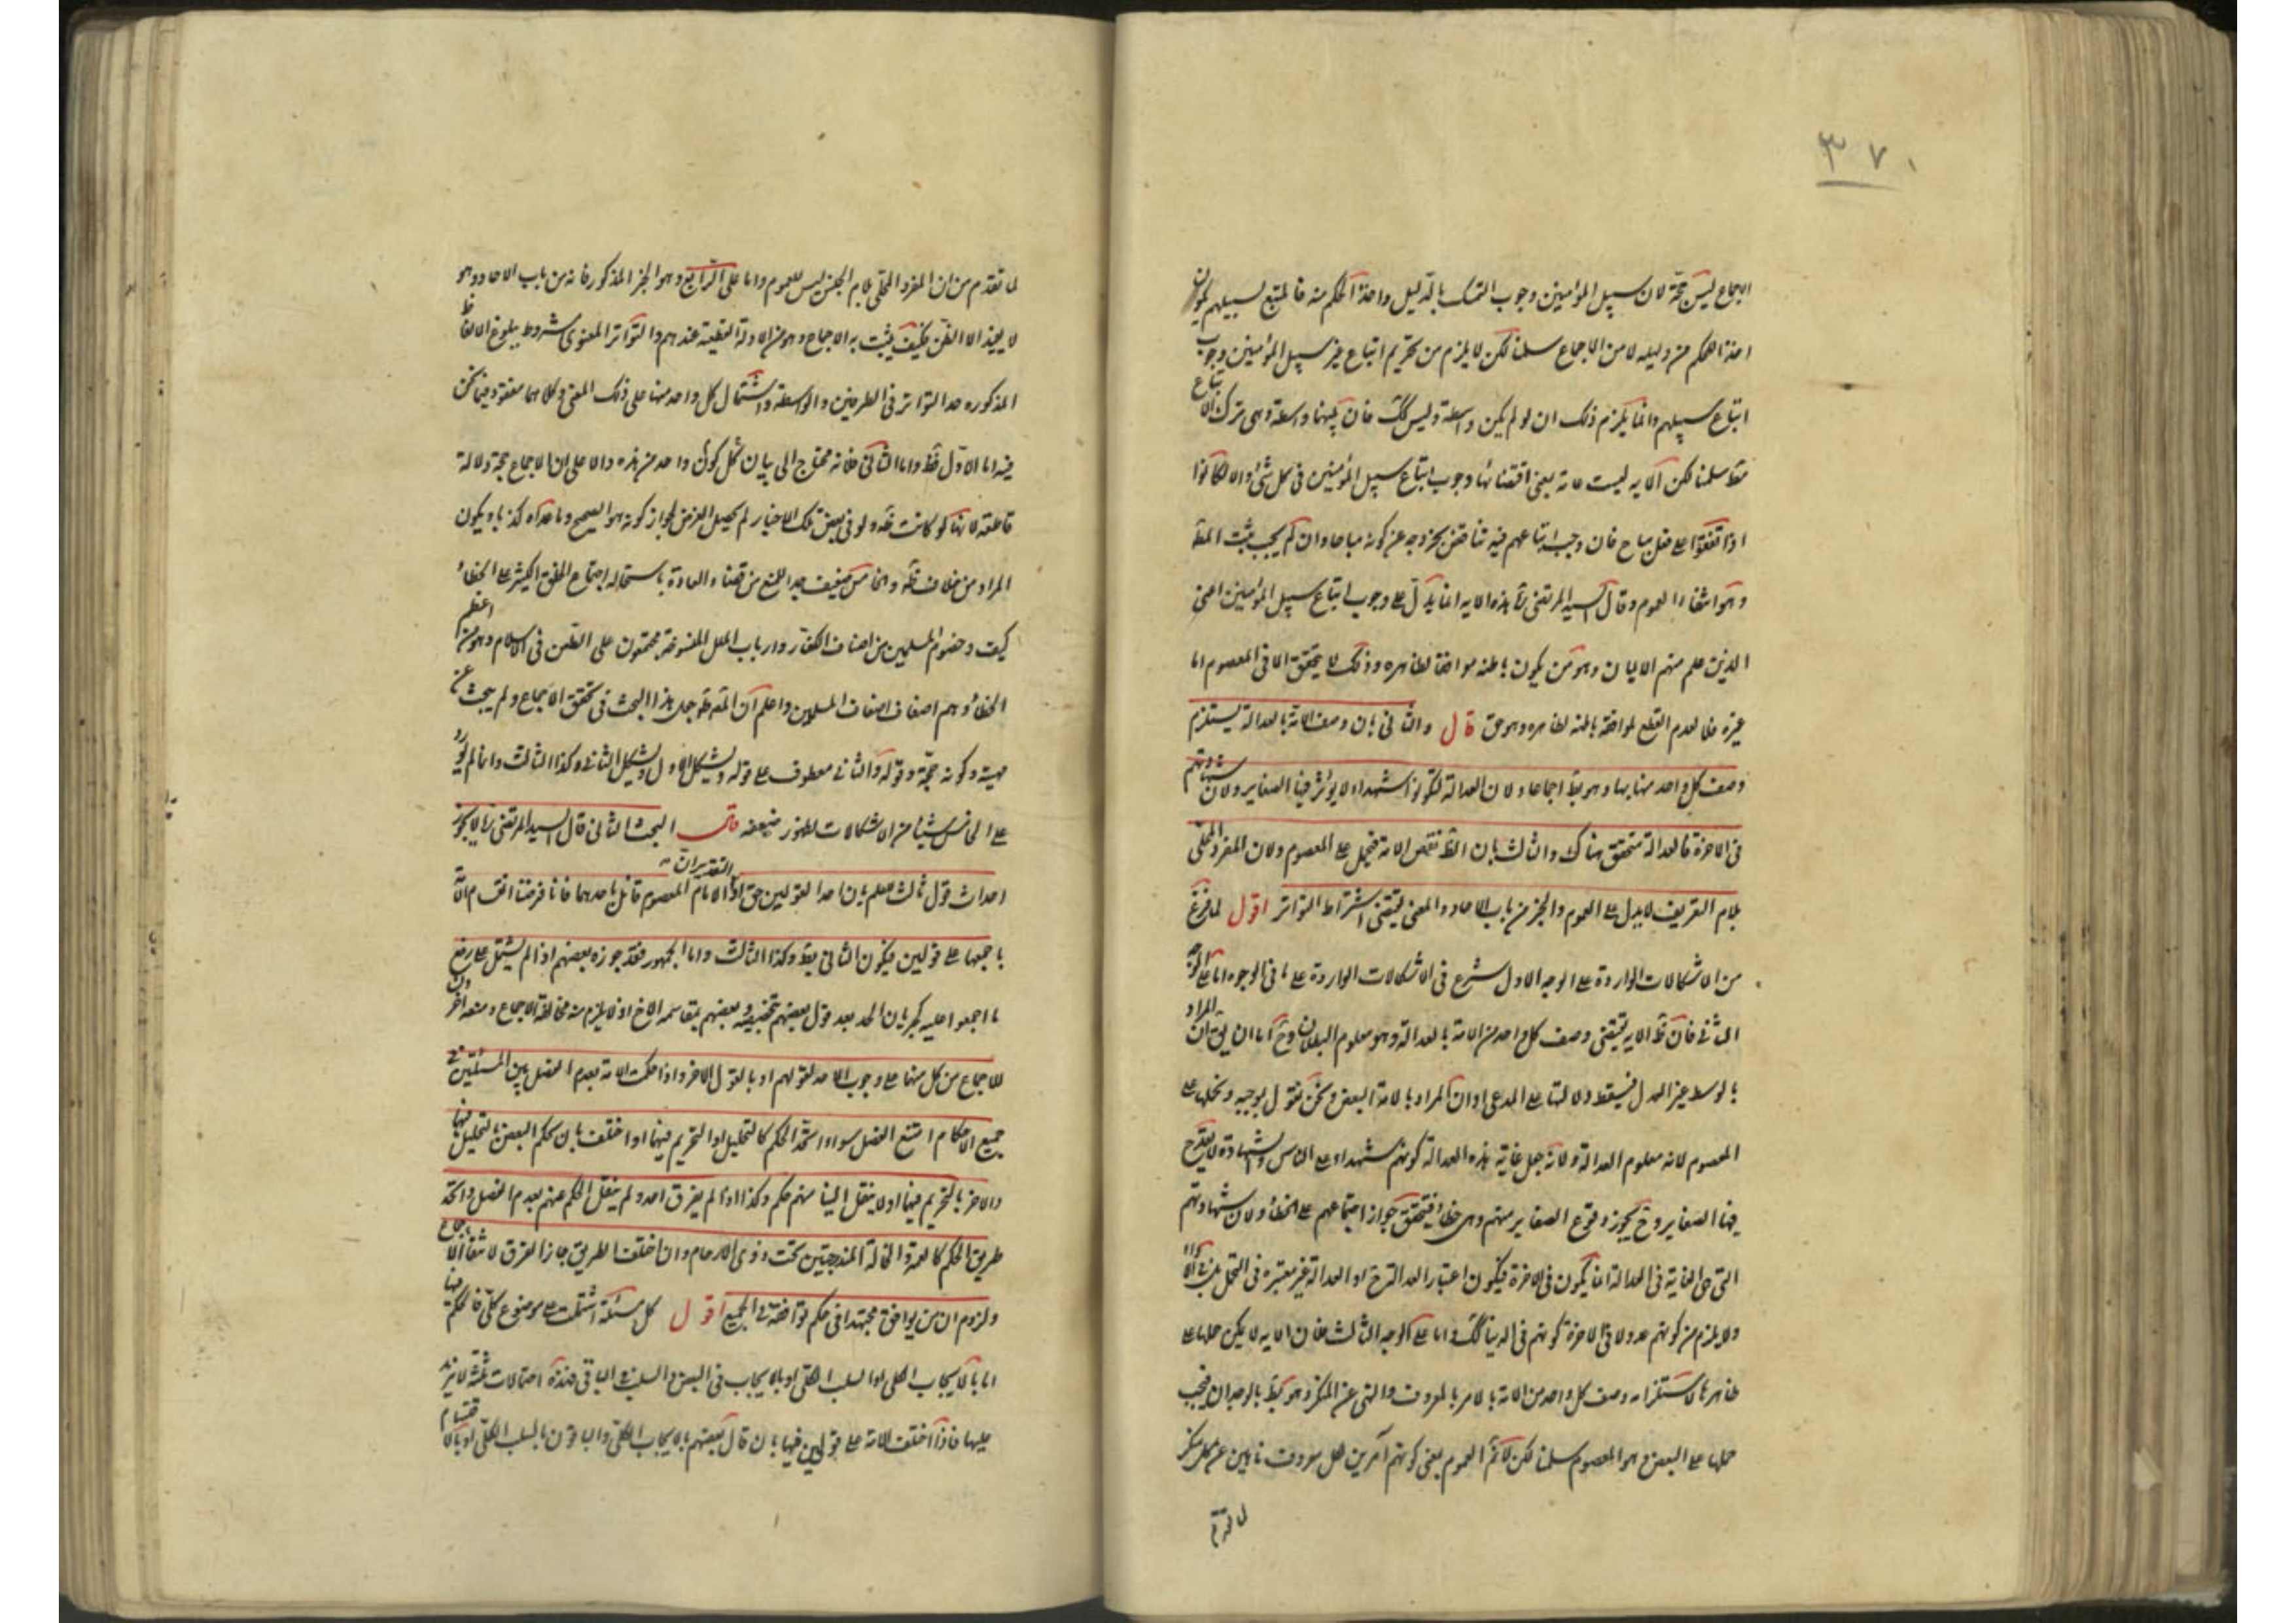 ٣٧٠
الاجماع ليس حجة لان سبيل المؤمنين وجوب التمسك بالدليل واخذ الحكم منه فالمتبع لسبيلهم يكون
اخذا للحكم من دليله لا من الاجماع سلمنا لكن لا يلزم من تحريم اتباع غير سبيل المؤمنين وجوب
اتباع سبيلهم وانما يلزم ذلك ان لو لم يكن واسطة وليس كك فان بينهما واسطة وهى ترك الاتباع
مط سلمنا لكن الآيه ليست عامة بمعنى اقتضائها وجوب اتباع سبيل المؤمنين فى كل شئ والا لكانوا
اذا اتفقوا على فعل مباح فان وجب اتباعهم فيه تناقض بخروجه عن كونه مباحا وان لم يجب ثبت المط
وهو انتفاء العموم وقال السيد المرتضى ره هذه الايه انما يدل على وجوب اتباع سبيل المؤمنين اعنى
الذين علم منهم الايمان وهو من يكون باطنه موافقا لظاهره وذلك لا يتحقق الا فى المعصوم اما
غيره فلا لعدم القطع بموافقة باطنه لظاهره وهو حق قال والثانى بان وصف الامة بالعدالة يستلزم
وصف كل واحد منها بها وهو بط اجماعا ولان العدالة لتكونوا شهداء لا يؤثر فيها الصغاير ولان شهادتهم
فى الاخرة فالعدالة متحقق هناك والثالث بان الظ نقض الامة فيحمل على المعصوم ولان المفرد المحلى
بلام التعريف لا يدل على العموم والخبر من باب الاحاد والمعنى يقتضى اشتراط التواتر اقول لما فرغ
من الاشكالات الواردة على الوجه الاول شرع فى الاشكالات الواردة على باقى الوجوه اما على الوجه
الثانى فان ظ الايه يقتضى وصف كل واحد من الامة بالعدالة وهو معلوم البطلان وح اما ان يق ان المراد
بالوسط غير العدل فيسقط دلالتها على المدعى او ان المراد بالامة البعض ونحن نقول بموجبه ونحملها على
المعصوم لانه معلوم العدالة ولانه جعل غاية هذه العدالة كونهم شهداء على الناس والشهادة لا يقدح
فيها الصغاير وح يجوز وقوع الصغاير منهم وهى خطا فيتحقق جواز اجتماعهم على الخطأ ولان شهادتهم
التى هى الغاية فى العدالة انما يكون فى الاخرة فيكون اعتبار العدالة ح اذ العدالة غير معتبره فى التحمل بل فى الاداء
ولا يلزم من كونهم عدولا فى الاخرة كونهم فى الدنيا كك واما على الوجه الثالث فان الايه لا يمكن حملها على
ظاهرها لاستلزامه وصف كل واحد من الامة بالامر بالمعروف والنهى عن المنكر وهو بط بالوجدان فيجب
حملها على البعض وهو المعصوم سلمنا لكن لا نم العموم بمعنى كونهم آمرين بكل معروف ناهين عن كل منكر
لما تقدم
لما تقدم من ان المفرد المحلى بلام الجنس ليس للعموم واما على الرابع وهو الخبر المذكور فانه من باب الاحاد وهو
لا يفيد الا الظن فكيف يثبت به الاجماع وهو من الادلة القطعية عندهم والتواتر المعنوى مشروط ببلوغ الالفاظ
المذكوره حد التواتر فى الطرفين والواسطة واشتمال كل واحد منها على ذلك المعنى وكلاهما مفقود فيما نحن
فيه اما الاول فظ واما الثانى فلانه محتاج الى بيان كون كل واحد من هذه دالا على ان الاجماع حجة دلالة
قاطعة لانها لو كانت ظ ولو فى بعض تلك الاخبار لم يحصل الغرض لجواز كونه هو الصحيح وما عداه كذبا ويكون
المراد منه خلاف ظه والخامس ضعيف جدا للمنع من قضاء العادة باستحالة اجتماع الخلق الكثير على الخطأ
كيف وخصوم المسلمين من اصناف الكفار وارباب الملل المنسوخة مجتمعون على الطعن فى الاسلام وهو من اعظم
الخطأ وهم اضعاف اضعاف المسلمين واعلم ان المص ره جعل هذا البحث فى تحقق الاجماع ولم يبحث عن
مهيته وكونه حجة وقوله والثانى معطوف على قوله ويشكل الاول ويشكل الثانى وكذا الثالث وانما لم يورد
على الخامس شيئا من الاشكالات لظهور ضعفه قال البحث الثانى قال السيد المرتضى ره لا يجوز
احداث قول ثالث للعلم بان احد القولين حق اذ الامام المعصوم قائل باحدهما فانا فرضنا انقسام الامة
باجمعها على قولين فيكون الثانى بط وكذا الثالث واما الجمهور فقد جوزه بعضهم اذا لم يشتمل على رفع
ما اجمعوا عليه كحرمان الجد بعد قول بعضهم بتخصيصه وبعضهم بتقاسمه الاخ اذ لا يلزم منه مخالفة الاجماع ومنعه اخرون
للاجماع من كل منهما على وجوب الاخذ بقولهم او بالقول الاخر واذا حكمت الامة بعدم الفصل بين المسئلتين فى
جميع الاحكام امتنع الفصل سواء اتحد الحكم كالتحليل او التحريم فيهما او اختلف بان حكم البعض بالتحليل فيهما
والاخر بالتحريم فيهما او لا ينقل الينا منهم حكم وكذا اذا لم يفرق احد ولم ينقل الحكم عنهم بعدم الفصل واتحد
طريق الحكم كالعمة والخالة المندرجتين تحت ذوى الارحام وان اختلف الطريق جاز الفرق لانتفاء الاجماع
ولزوم ان من يوافق مجتهدا فى حكم لوافقه فى الجميع اقول كل مسئلة اشتملت على موضوع كلى فالحكم فيها
اما بالايجاب الكلى او السلب الكلى او بالايجاب فى البعض والسلب فى الباقى فهذه احتمالات ثلثة لا مزيد
عليها فاذا اختلف الامة على قولين فيها بان قال بعضهم بالايجاب الكلى والباقون بالسلب الكلى او بالاقتسام